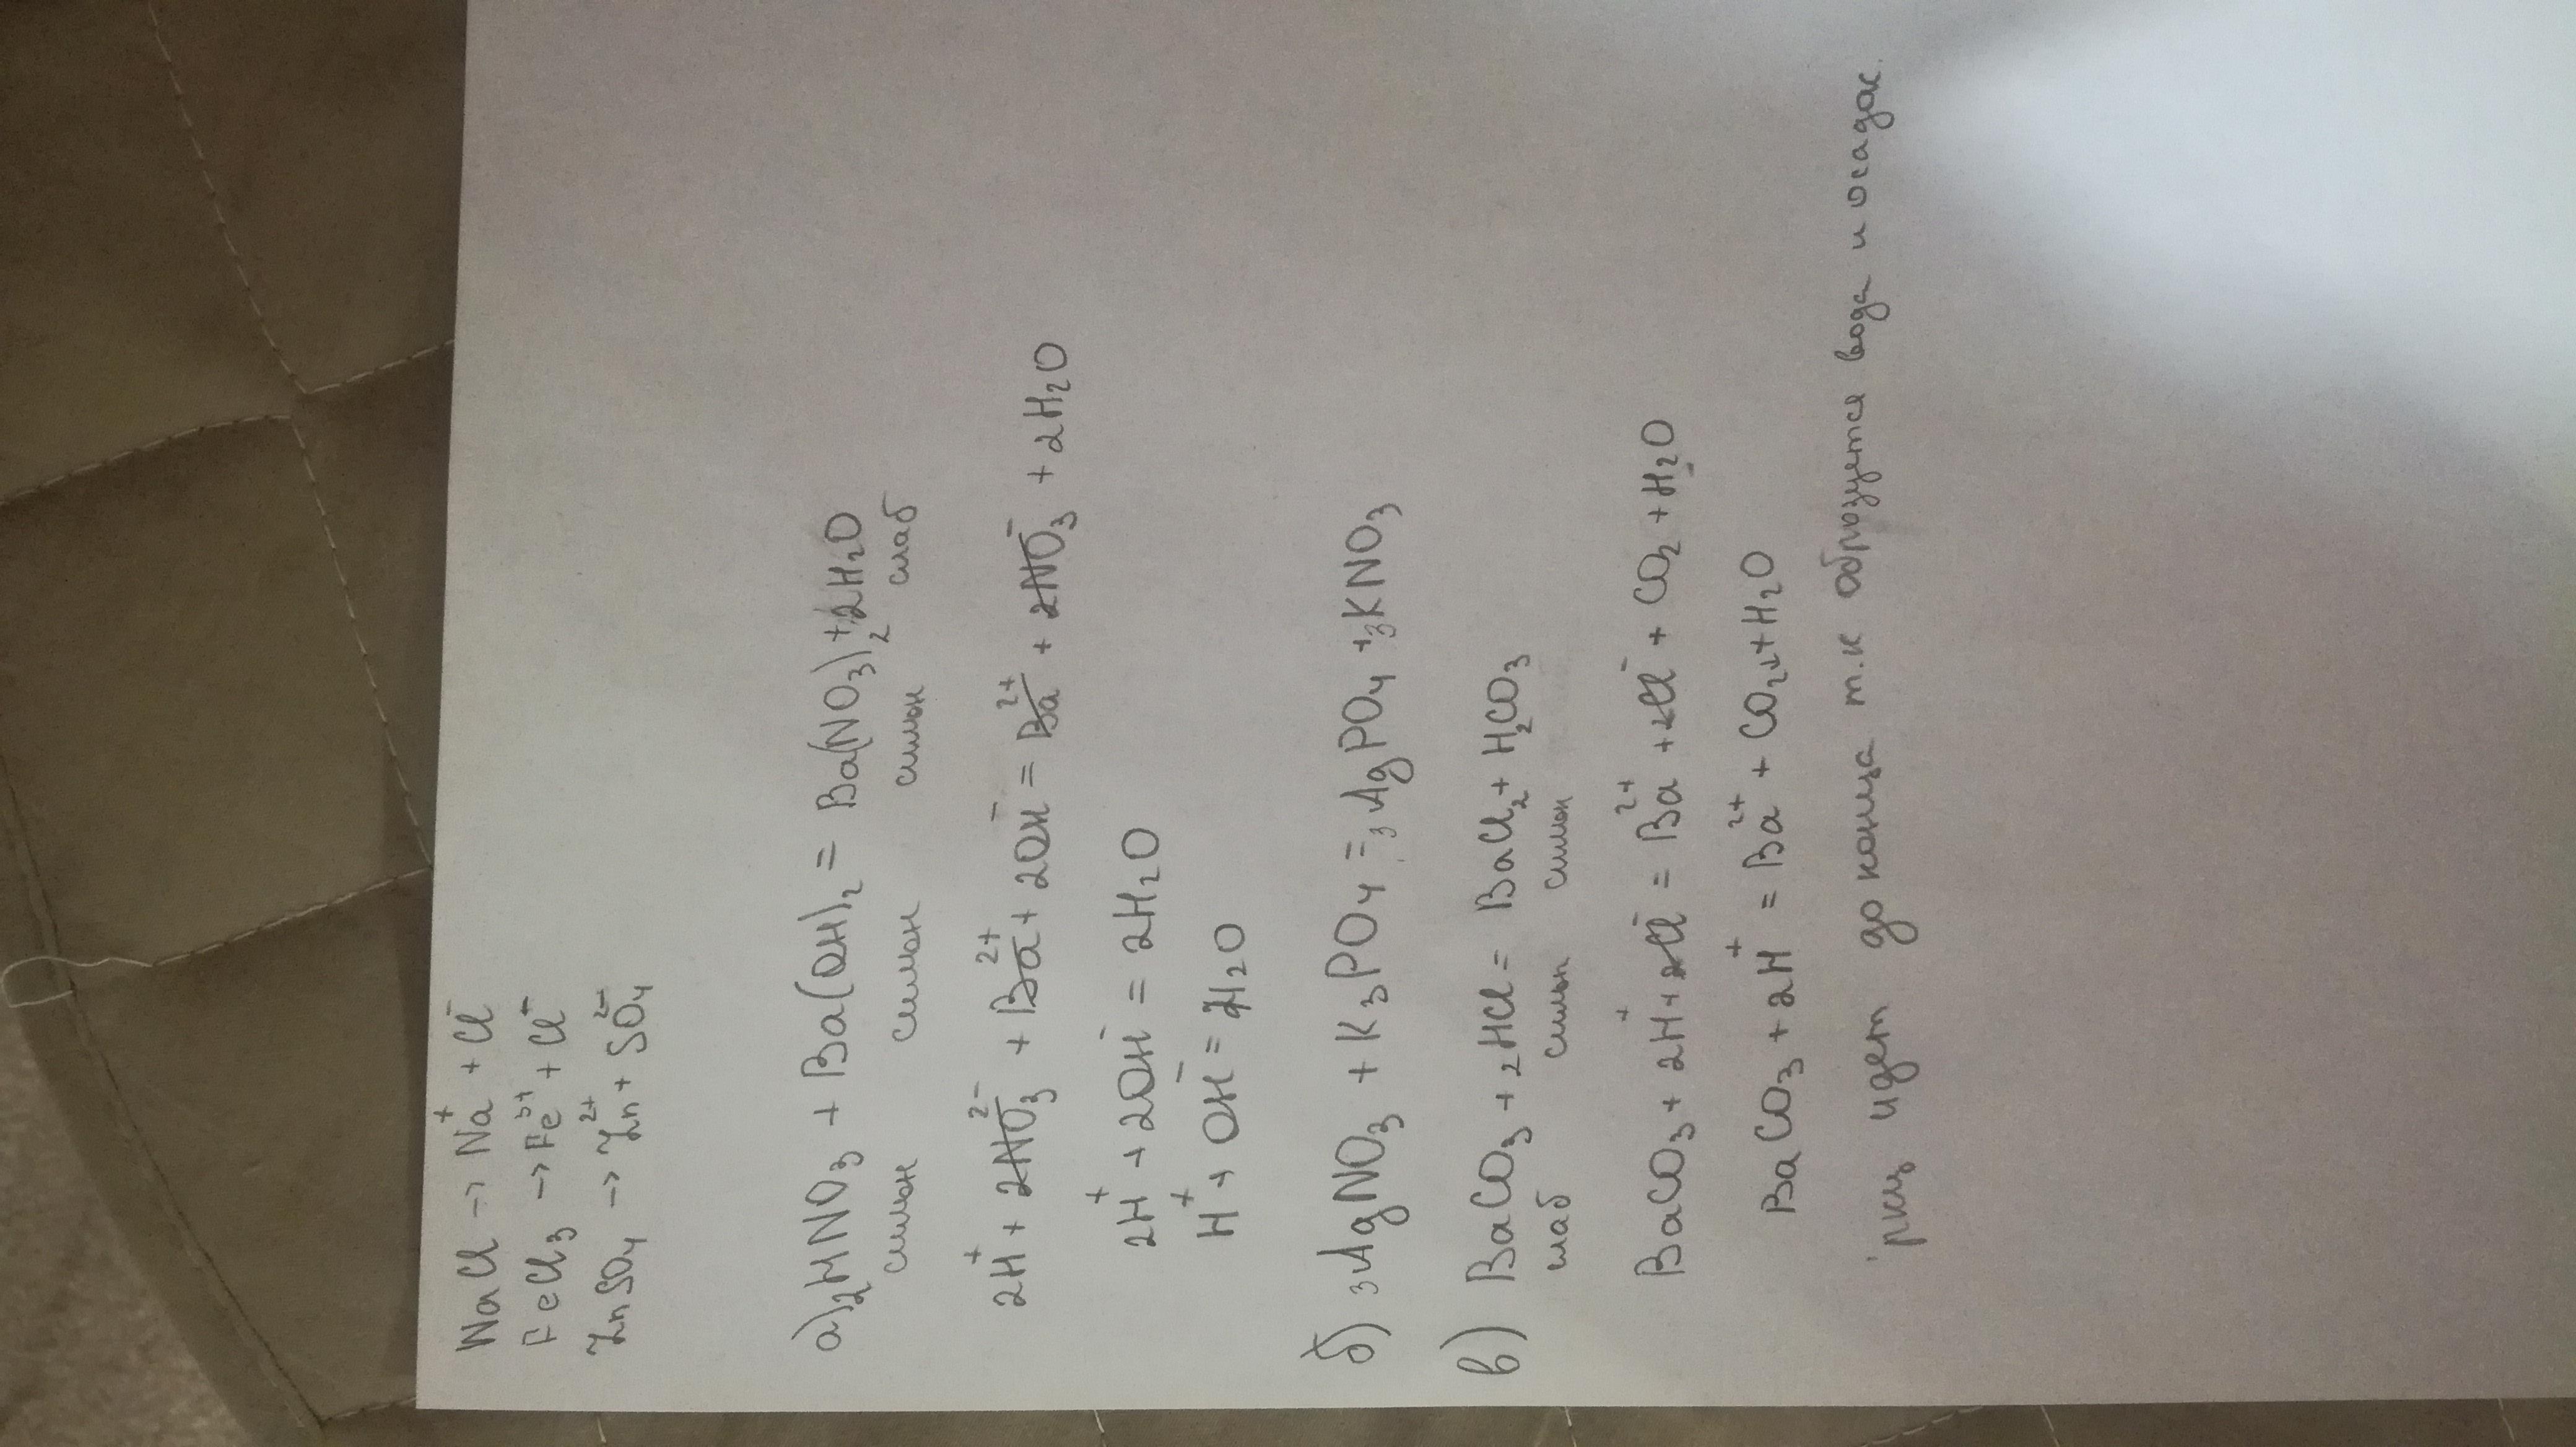 NaCl → Na⁺ + Cl⁻
FeCl₃ → Fe³⁺ + Cl⁻
ZnSO₄ → Zn²⁺ + SO₄²⁻
а) 2HNO₃ + Ba(OH)₂ = Ba(NO₃)₂ + 2H₂O
сильн сильн сильн слаб
2H⁺ + 2NO₃²⁻ + Ba²⁺ + 2OH⁻ = Ba²⁺ + 2NO₃⁻ + 2H₂O
2H⁺ + 2OH⁻ = 2H₂O
H⁺ + OH⁻ = H₂O
б) 3AgNO₃ + K₃PO₄ = 3AgPO₄ + 3KNO₃
в) BaCO₃ + 2HCl = BaCl₂ + H₂CO₃
слаб сильн сильн
BaCO₃ + 2H⁺ + 2Cl⁻ = Ba²⁺ + 2Cl⁻ + CO₂ + H₂O
BaCO₃ + 2H⁺ = Ba²⁺ + CO₂↓ + H₂O
ркц идет до конца т.к образуется вода и осадок.